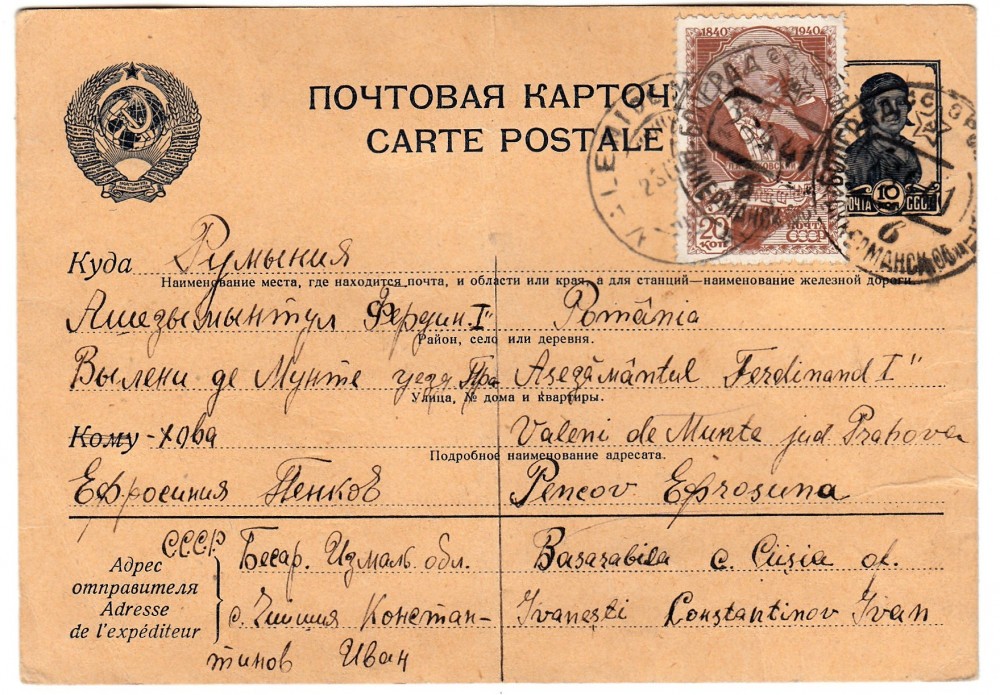 ПОЧТОВАЯ КАРТОЧ
CARTE POSTALE
1840 1940
20 КОП ПОЧТА СССР
ПОЧТА 10 СССР
Куда Румыния
Наименование места, где находится почта, и области или края, а для станций—наименование железной дороги.
Ашезымынтул Фердин. I" România
Район, село или деревня.
Вылени де Мунте уедз. Пра Aşezământul Ferdinand I"
Улица, № дома и квартиры.
Кому -хова Valeni de Munte jud Prahova
Подробное наименование адресата.
Ефросиния Пенков Pencov Efrosuna
СССР Бесар. Измаль. обл. Basarabila c. Ciişia of.
Адрес отправителя
Adresse de l'expéditeur
с. Чишия Констан- Ivaneşti Constantinov Ivan
тинов Иван